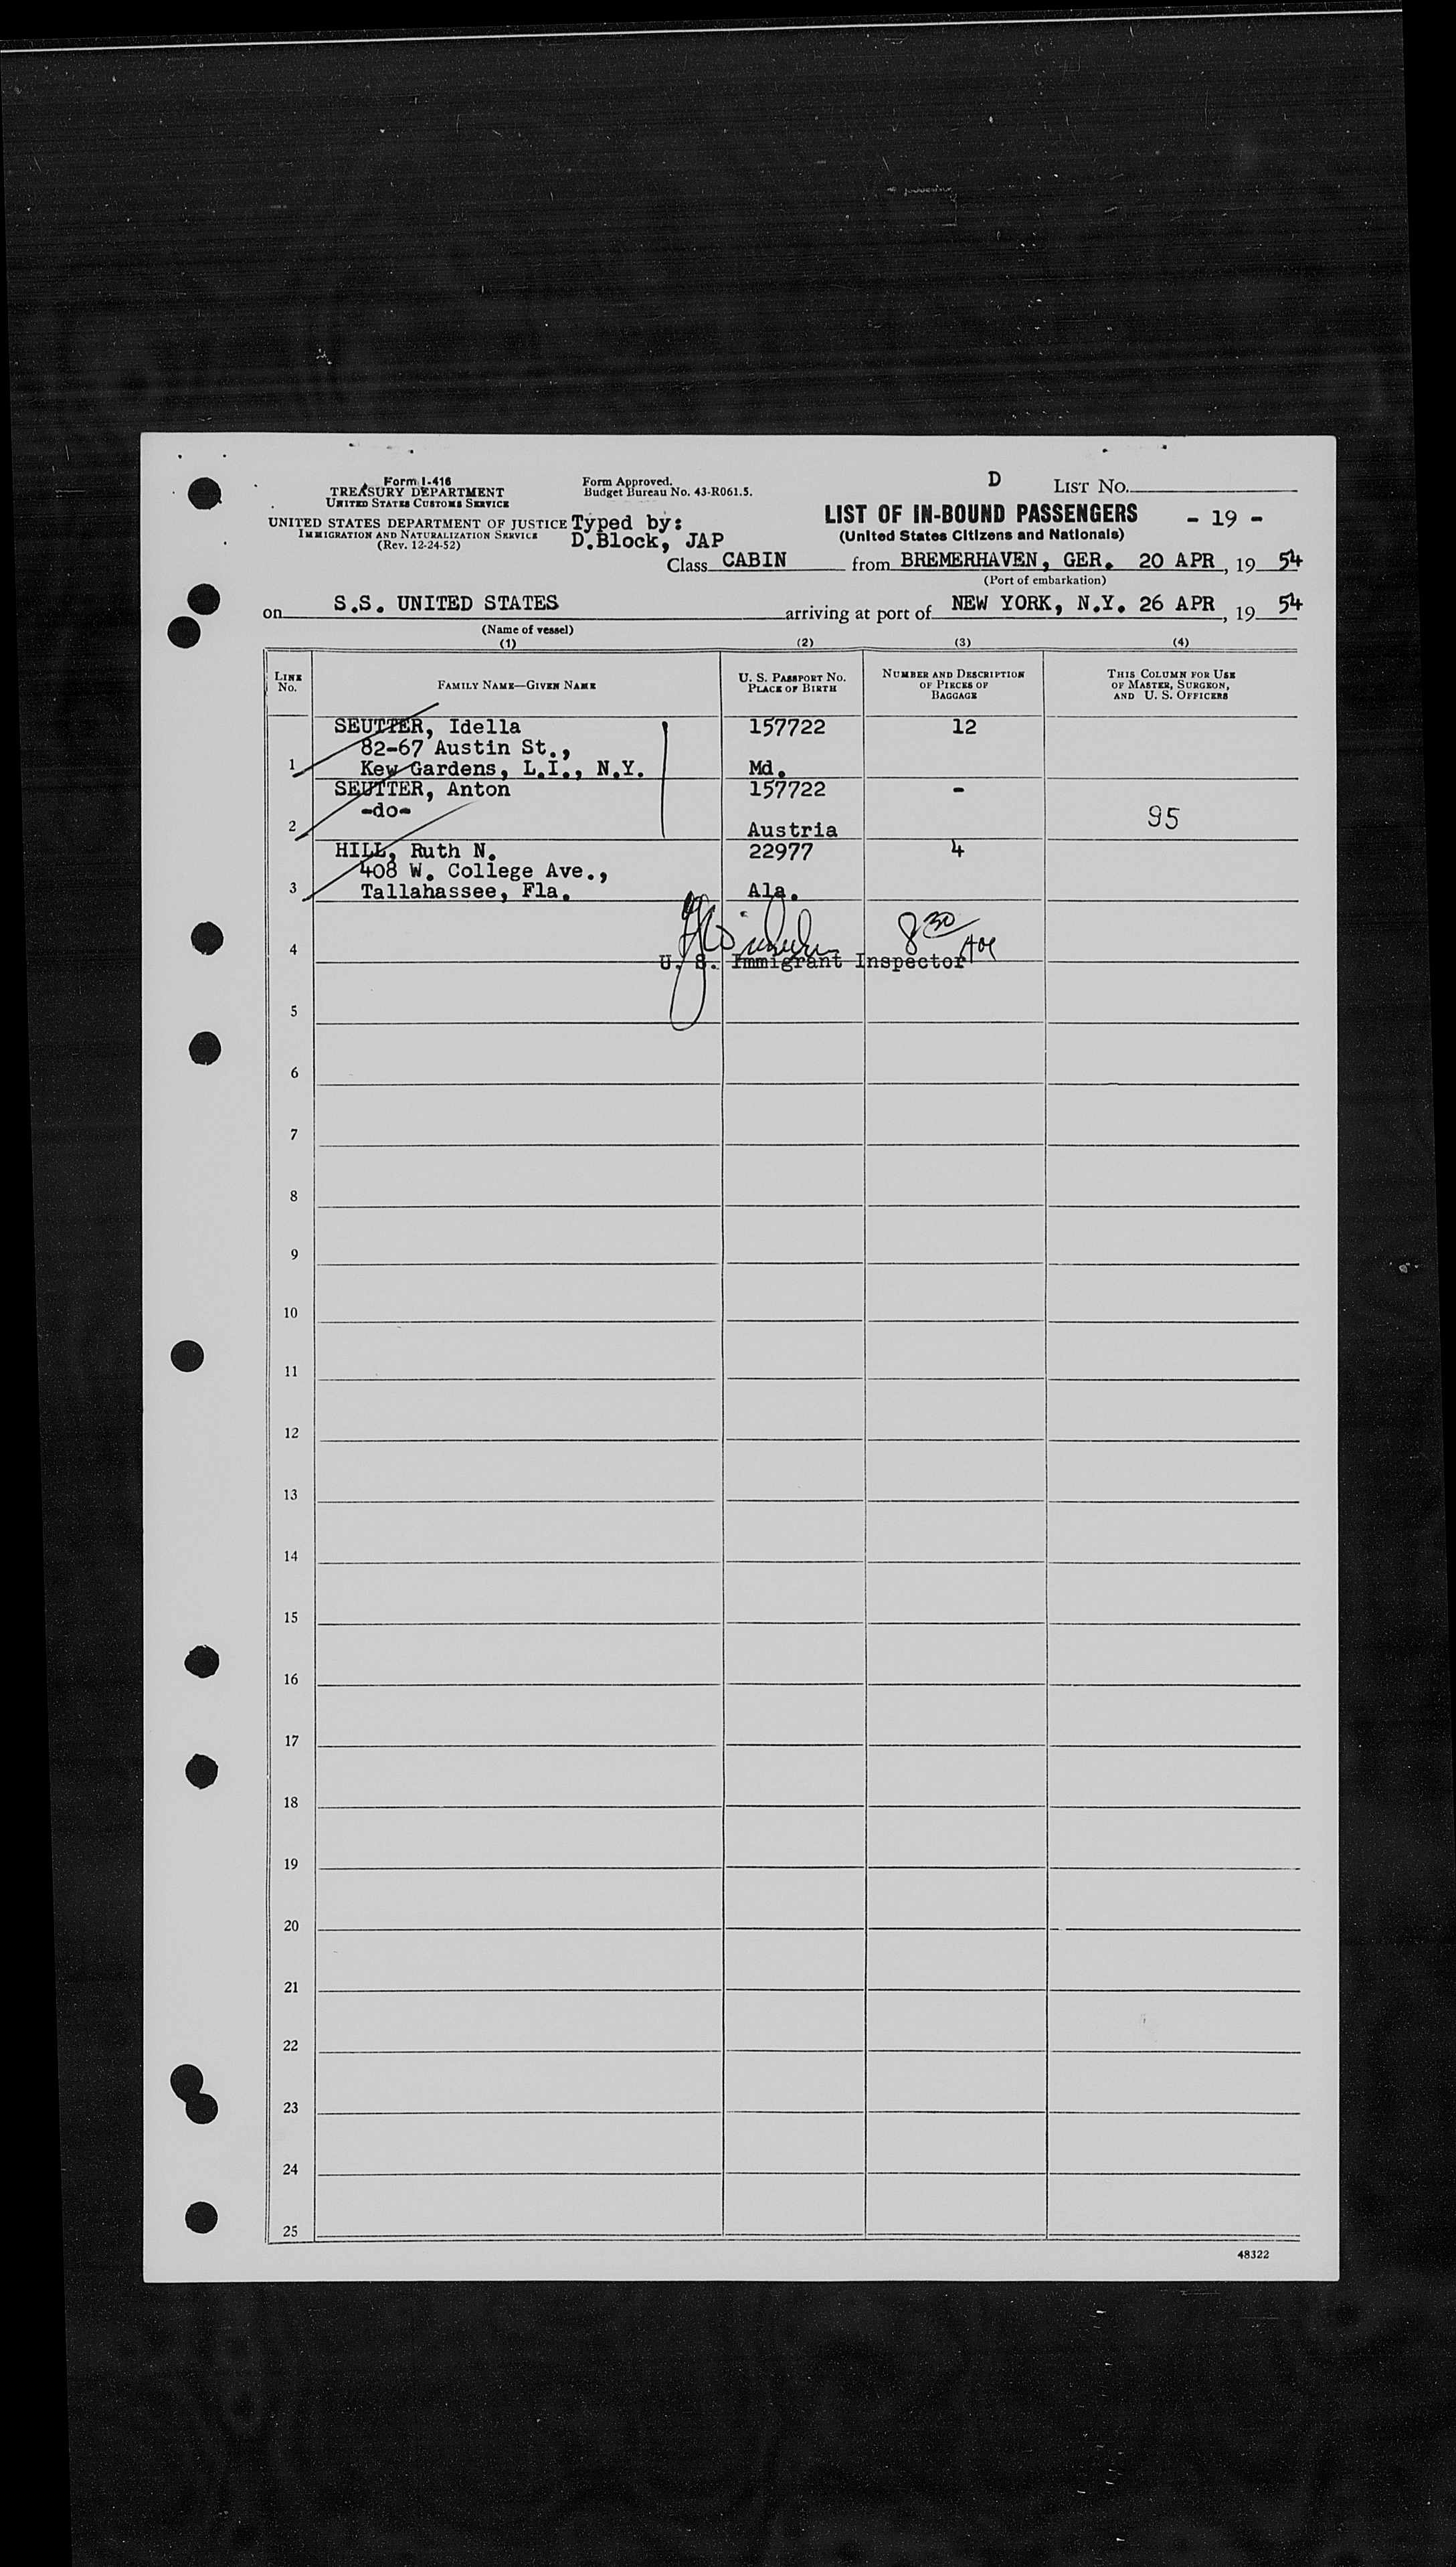 Form I-416
TREASURY DEPARTMENT
UNITED STATES CUSTOMS SERVICE
UNITED STATES DEPARTMENT OF JUSTICE
IMMIGRATION AND NATURALIZATION SERVICE
(Rev. 12-24-52)
Form Approved.
Budget Bureau No. 43-R061.5.
Typed by:
D.Block, JAP
D LIST No.
LIST OF IN-BOUND PASSENGERS - 19 -
(United States Citizens and Nationals)
Class CABIN from BREMERHAVEN, GER. 20 APR, 19 54
(Port of embarkation)
on S.S. UNITED STATES arriving at port of NEW YORK, N.Y. 26 APR, 19 54
(Name of vessel)
(1) (2) (3) (4)
LINE No.
FAMILY NAME—GIVEN NAME
U. S. PASSPORT No.
PLACE OF BIRTH
NUMBER AND DESCRIPTION OF PIECES OF BAGGAGE
THIS COLUMN FOR USE OF MASTER, SURGEON, AND U. S. OFFICERS
SEUTTER, Idella 157722 12
82-67 Austin St.,
1 Kew Gardens, L.I., N.Y. Md.
SEUTTER, Anton 157722 -
-do- 95
2 Austria
HILL, Ruth N. 22977 4
408 W. College Ave.,
3 Tallahassee, Fla. Ala.
8 30
4
U. S. Immigrant Inspector
5
6
7
8
9
10
11
12
13
14
15
16
17
18
19
20
21
22
23
24
25
48322